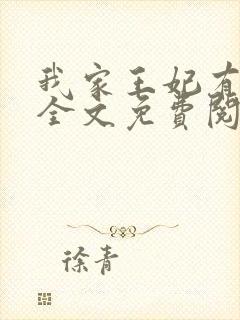 我家王妃有
全文免費閱
徐青